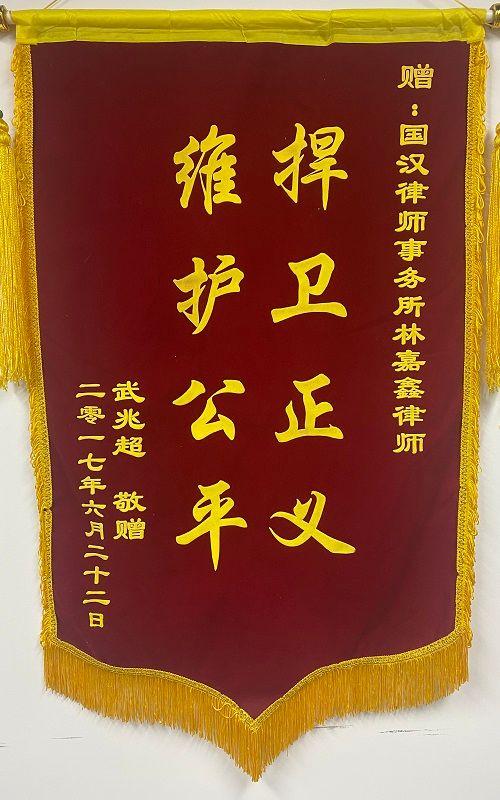 赠：国汉律师事务所林嘉鑫律师
捍卫正义
维护公平
武兆超 敬赠
二零一七年六月二十二日